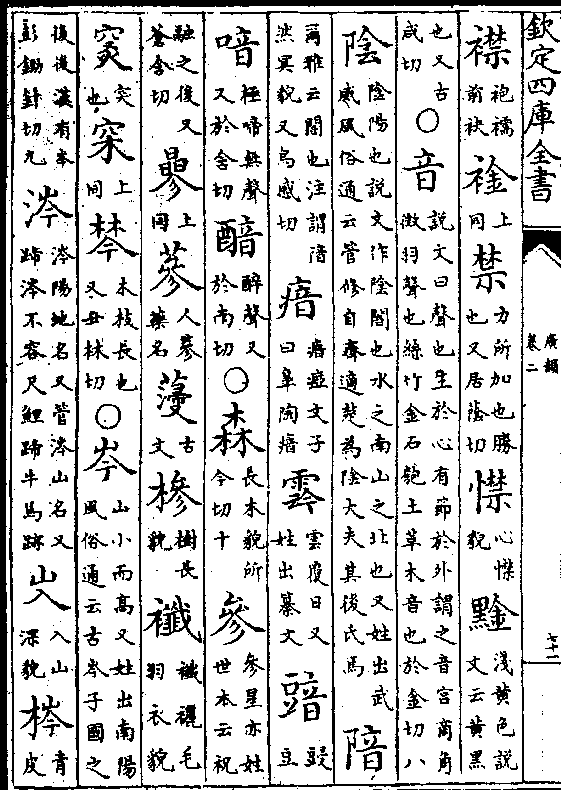 欽定四庫全書
廣韻
卷二
七十一
襟袍襦前袂䘳上同禁力所加也勝也又居蔭切惏心惏貌黅淺黃色說文云黃黑
也又古咸切○音說文曰聲也生於心有節於外謂之音宮商角徵羽聲也絲竹金石匏土革木音也於金切八
陰陰陽也說文作陰闇也水之南山之北也又姓出武威風俗通云管修自齊適楚為陰大夫其後氏焉隌
爾雅云闇也注謂暗然冥貌又烏感切瘖瘖瘂文子曰皋陶瘖霒雲覆日又姓出纂文䜾䜾豆
喑極啼無聲又於含切䤃醉聲又於南切○森長木貌所今切十參參星亦姓世本云祝
融之後又蒼含切曑上同蔘人蔘藥名蓡古文槮樹長貌襳襳襹毛羽衣貌
突也罙上同棽木枝長也又丑林切○岑山小而高又姓出南陽風俗通云古岑子國之
後後漢有岑彭鋤針切九涔涔陽地名又管涔山名又蹄涔不容尺鯉蹄牛馬跡入山深貌梣青皮